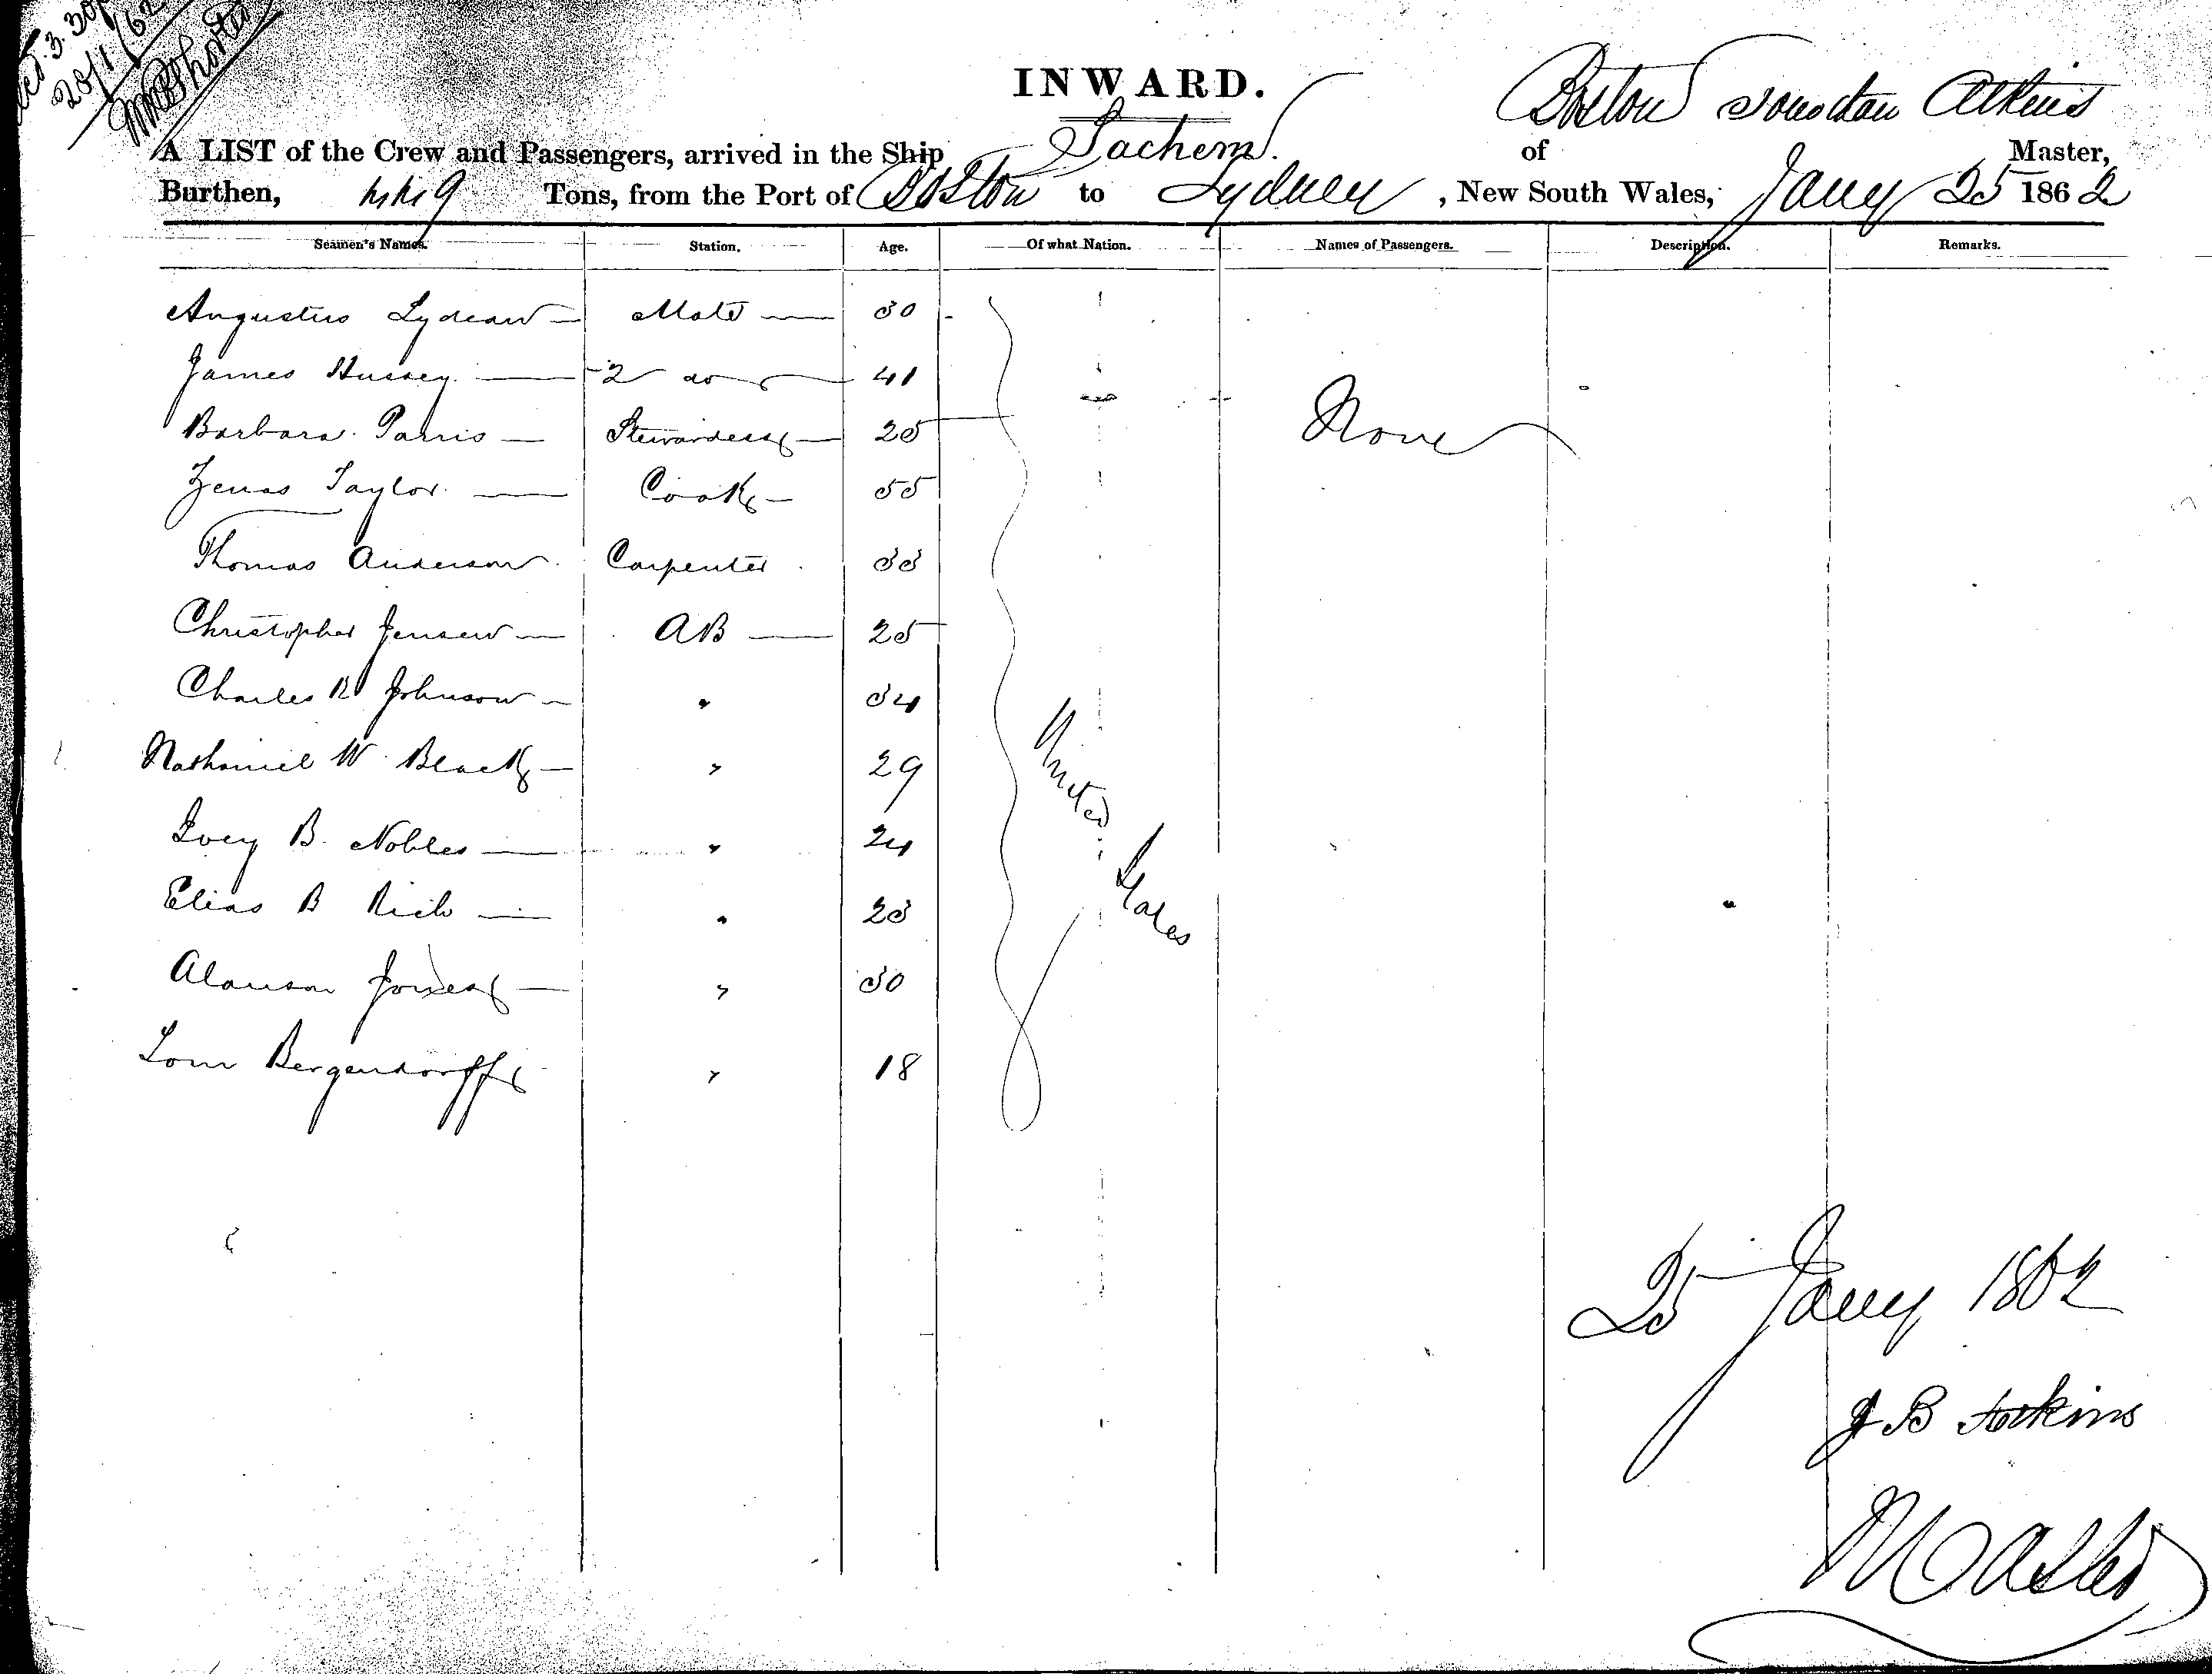 3.30
INWARD.
Boston Jonathan Atkins
A LIST of the Crew and Passengers, arrived in the Ship Sachem of Master,
Burthen, Tons, from the Port of Boston to Sydney, New South Wales, Jany 25 1862
Seamen's Names. Station. Age. Of what Nation. Names of Passengers. Description. Remarks.
Augustus Mate 30
James Hussey 2 do 41
Barbara Parris Stewardess 25
None
Zenas Taylor Cook 55
Thomas Anderson Carpenter 33
Christopher Jensen AB 25
Charles R Johnson " 34
Nathaniel W Black " 29
United States
Ivey B. Nobles " 24
Elias B Rich " 23
Alanson Jones " 30
Bergendorff " 18
25 Jany 1862
J B Atkins
Master